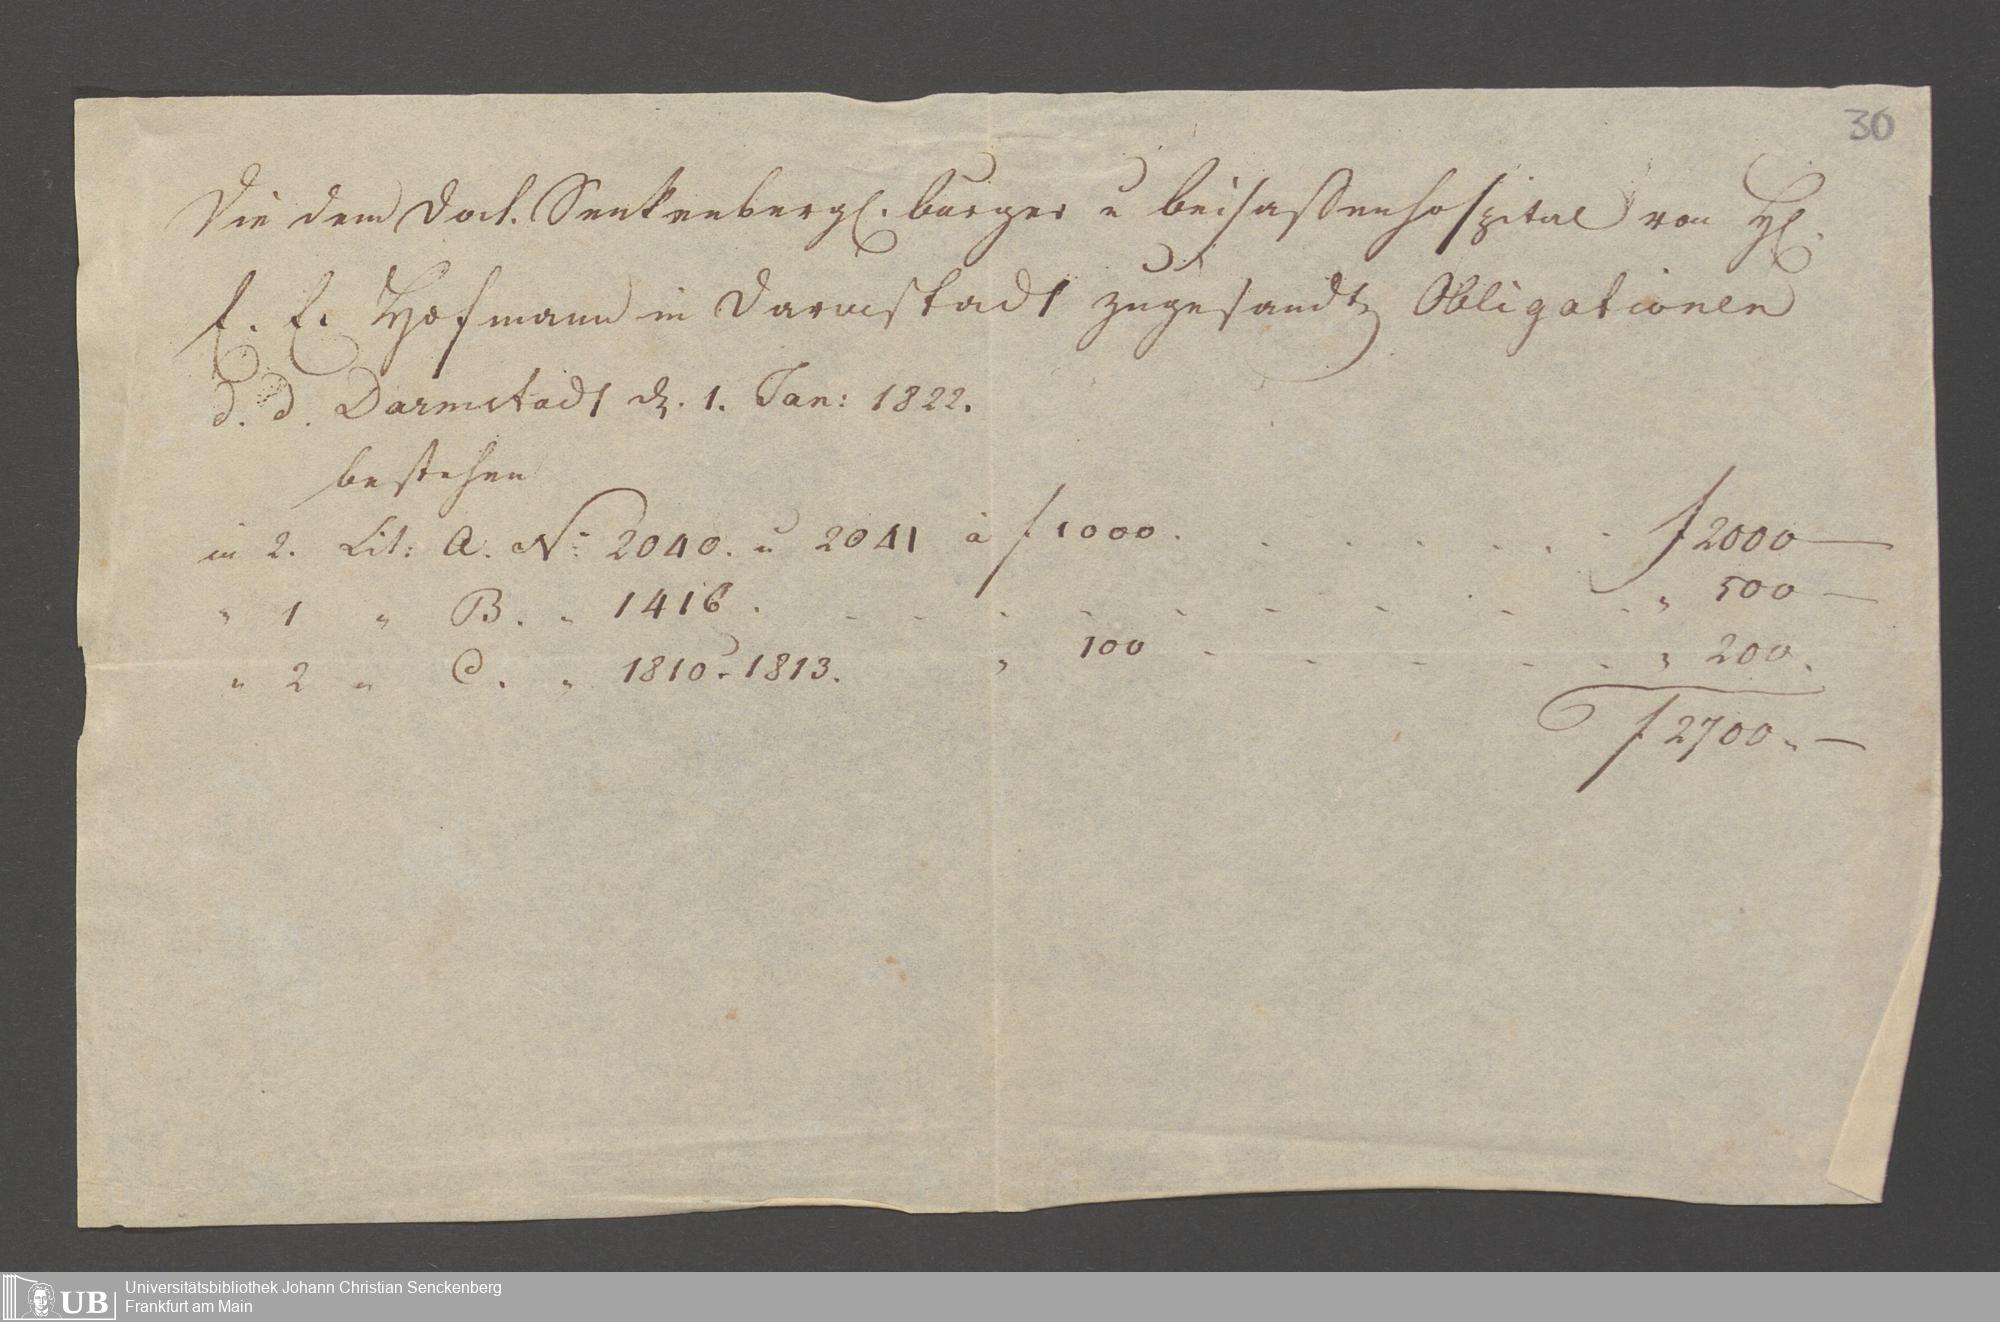 30
Die dem Doct. Senkenbergl. burger u beisassenhospital von H.
E. E. Hofmann in Darmstadt zugesandte Obligationen
d. d. Darmstadt d. 1. Jan: 1822.
bestehen
in 2. Lit: A. No: 2040. u 2041 à f 1000. . . . . . . . f 2000—
" 1 " B. " 1416 . - - - - - - - - - " 500—
" 2 " C. " 1810 u 1813. " 100 - - - - - " 200.
f 2700. —
UB
Universitätsbibliothek Johann Christian Senckenberg
Frankfurt am Main